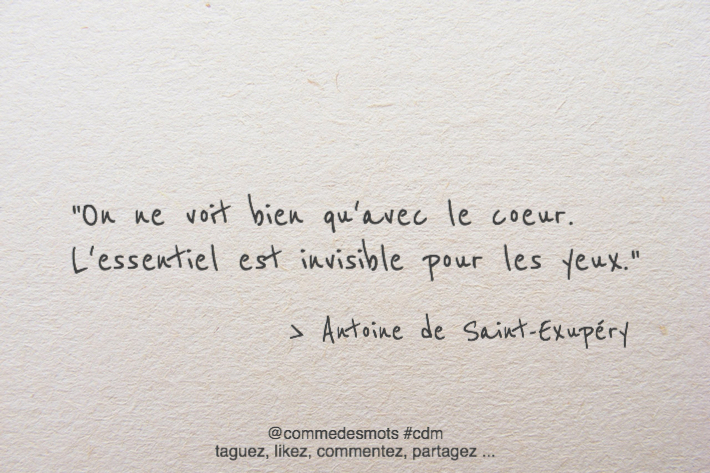 "On ne voit bien qu'avec le coeur.
L'essentiel est invisible pour les yeux."
> Antoine de Saint-Exupéry
@commedesmots #cdm
taguez, likez, commentez, partagez ...